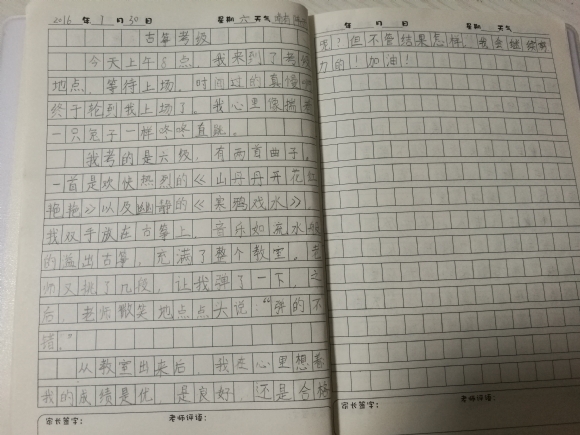 2016 年 1 月 30 日 星期 六 天气
古筝考级
今天上午8点，我来到了考级
地点，等待上场。时间过的真慢啊
终于轮到我上场了。我心里像揣着
一只兔子一样咚咚直跳。
我考的是六级，有两首曲子。
一首是欢快热烈的《山丹丹开花红
艳艳》以及幽静的《寒鸦戏水》。
我双手放在古筝上，音乐如流水般
的溢出古筝，充满了整个教室。老
师又挑了几段，让我弹了一下，之
后，老师微笑地点点大说：“弹的不
错。”
从教室出来后，我在心里想着
我的成绩是优，是良好，还是合格
家长签字： 老师评语：
年 月 日 星期 天气
呢？但不管结果怎样，我会继续努
力的！加油！
家长签字： 老师评语：